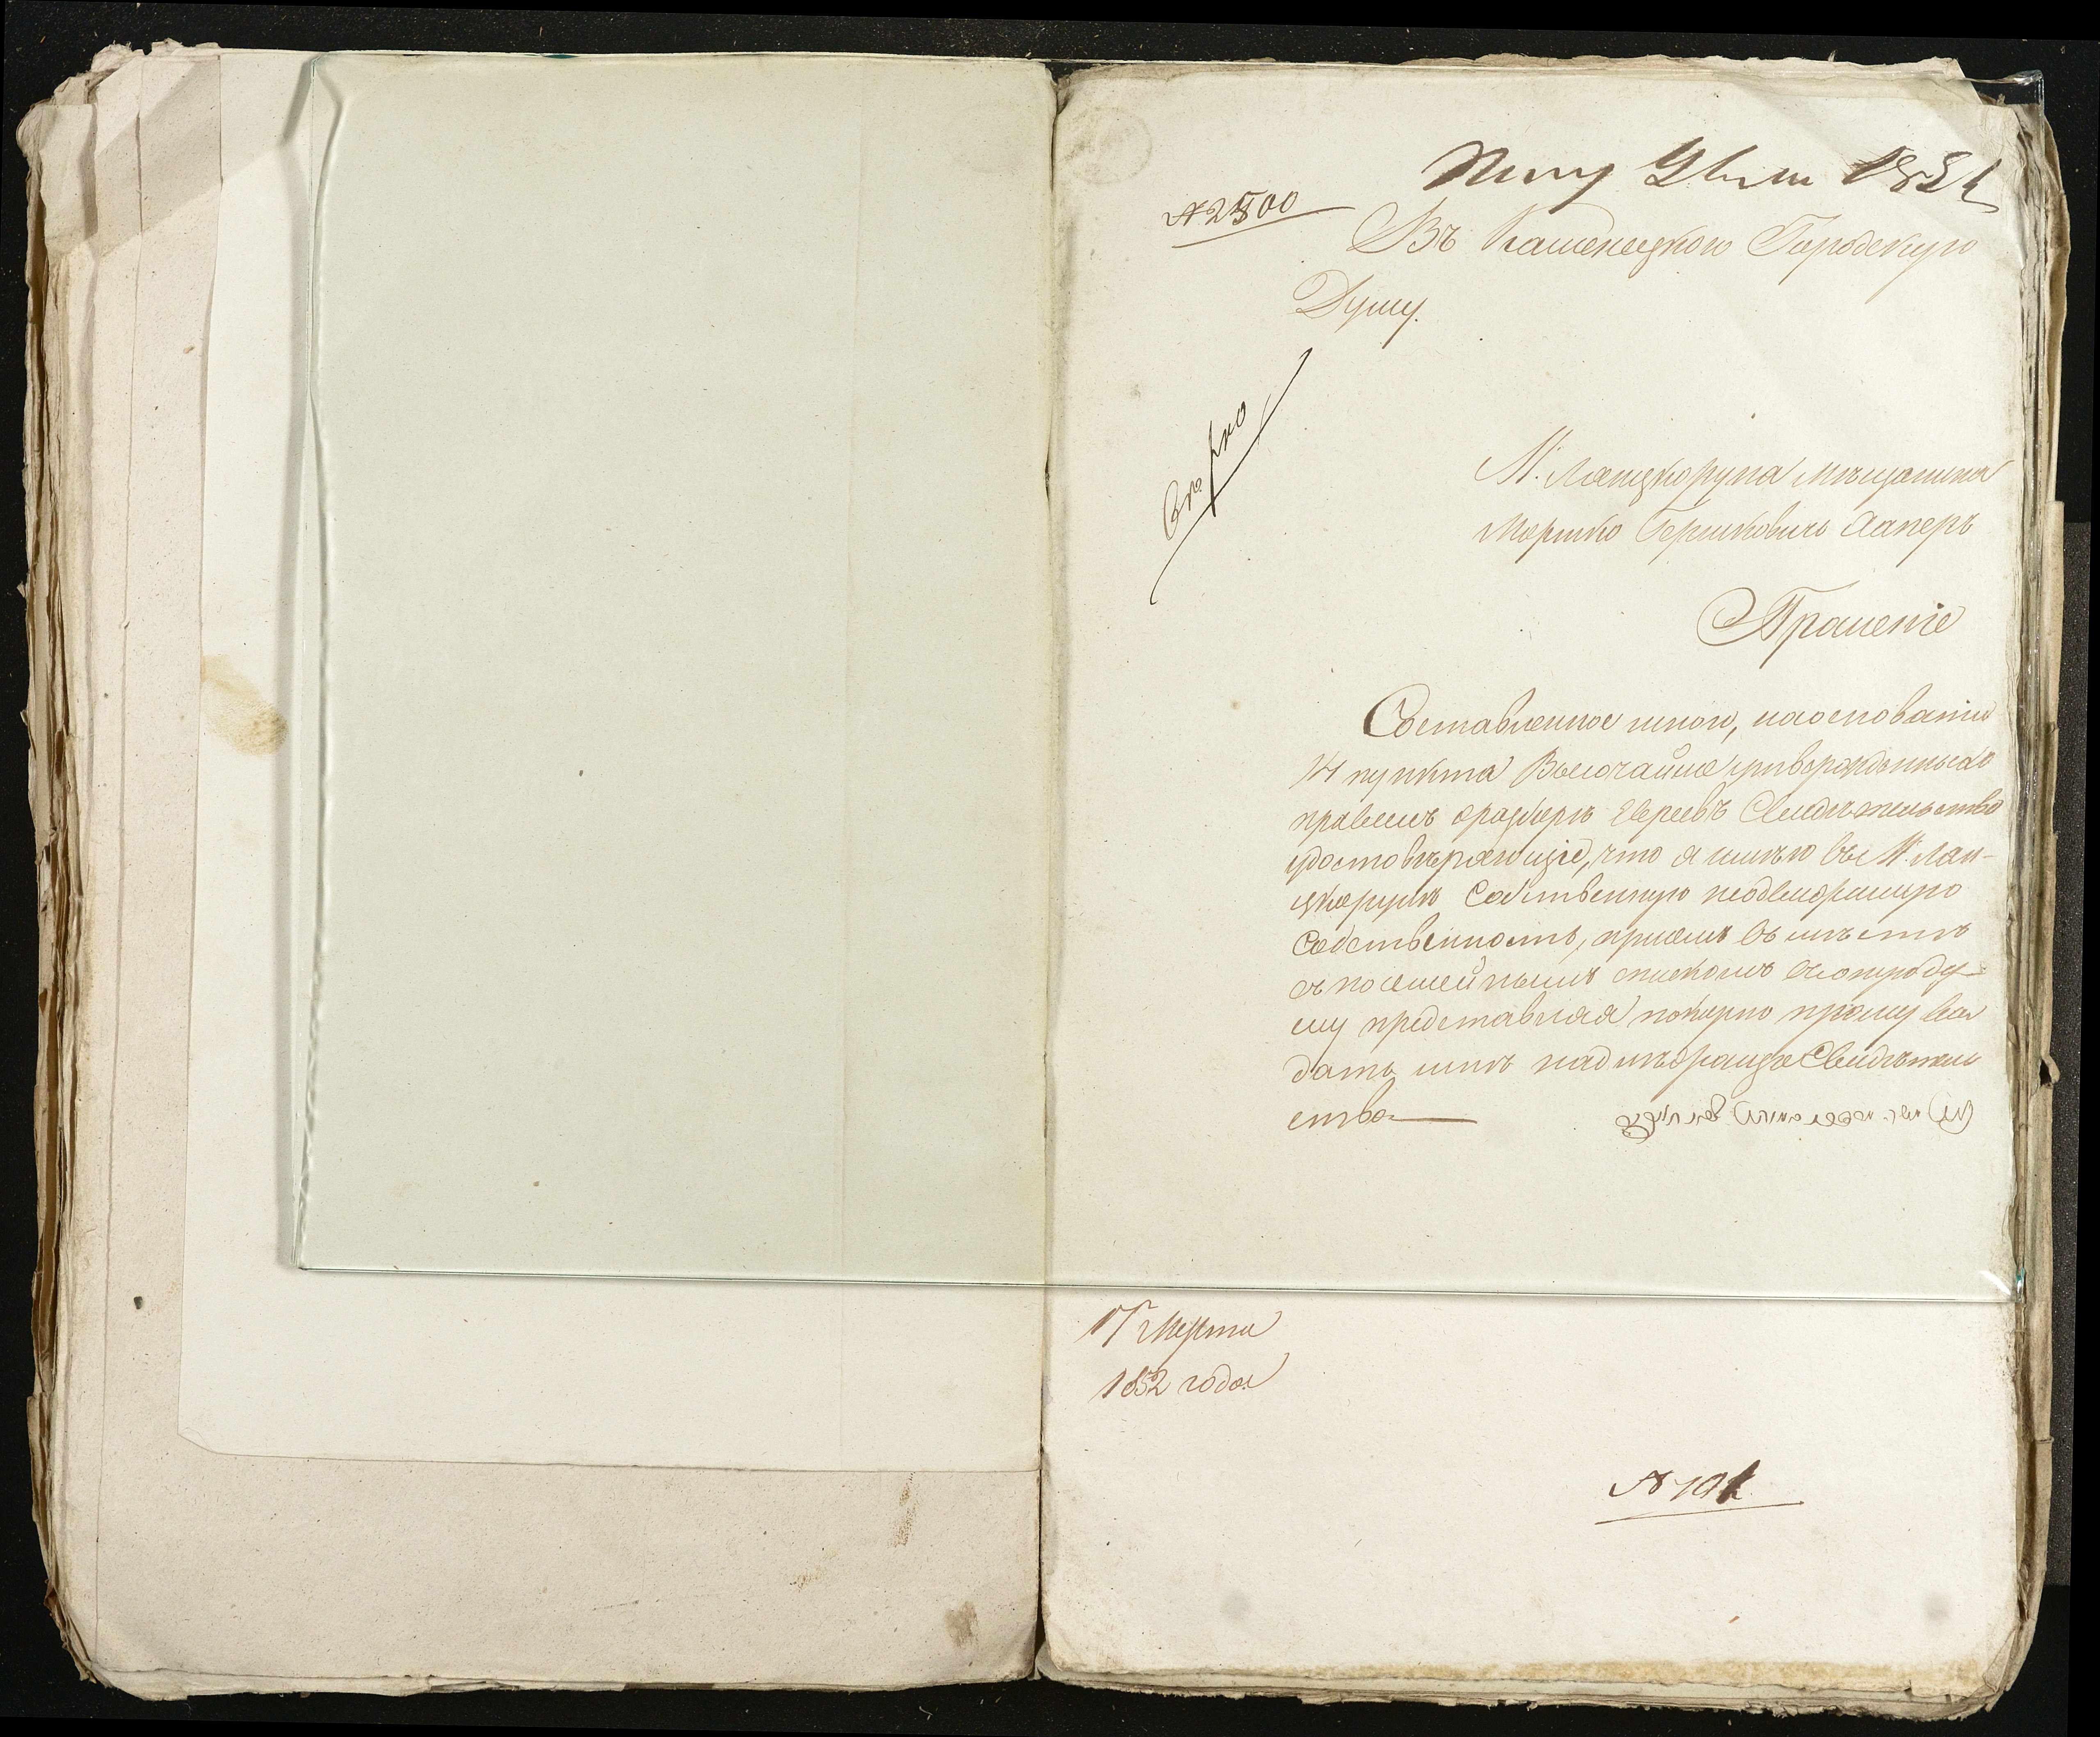 № 2500
Въ Каменецкою Городскую
Думу.
М. Ланцкоруна мещанина
Мошко Гершковичъ Аапекъ
Прошеніе
Составленное мною, на основаніи
14 пункта Высочайше утвержденныхъ
правилъ о разборѣ Евреевъ Свидѣтельство
удостовѣряющіе, что я имѣю въ М. Лан-
цкорунѣ Собственную недвижимую
Собственность, при семъ вместѣ
съ посемейнымъ спискомъ въ оную Ду-
му представляя покорно прошу вы
дать мнѣ надлежащее Свидѣтель
ство
17 Марта
1852 года